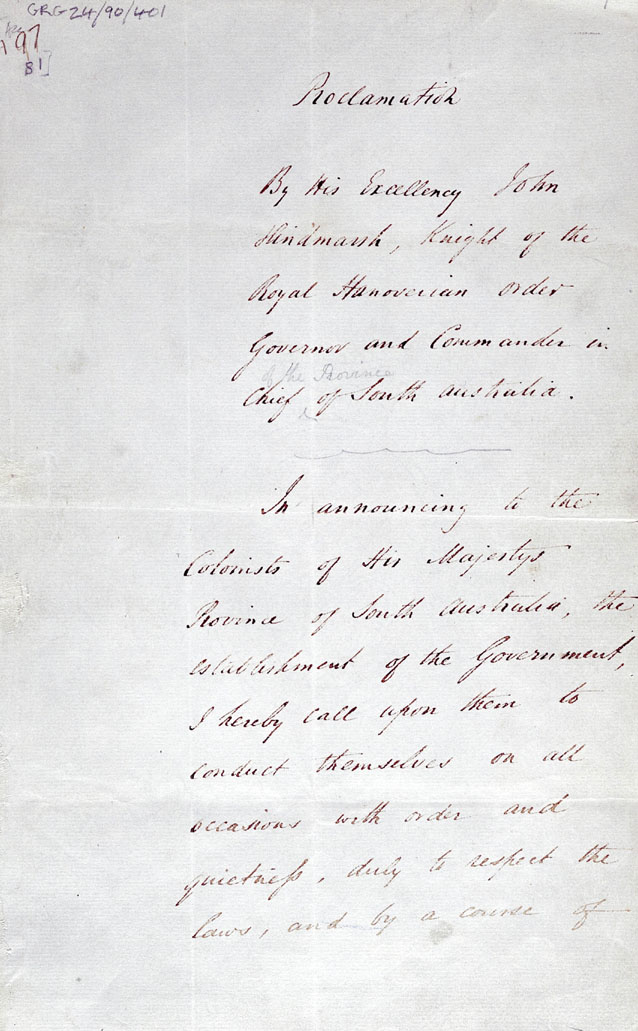 GRG24/90/401
97
B1]
Proclamation
By His Excellency John
Hindmarsh, Knight of the
Royal Hanoverian order
Governor and Commander in
of the Province
Chief of South Australia.
In announcing to the
Colonists of His Majestys
Province of South Australia, the
establishment of the Government,
I hereby call upon them to
conduct themselves on all
occasions with order and
quietneſs, duly to respect the
laws, and by a course of